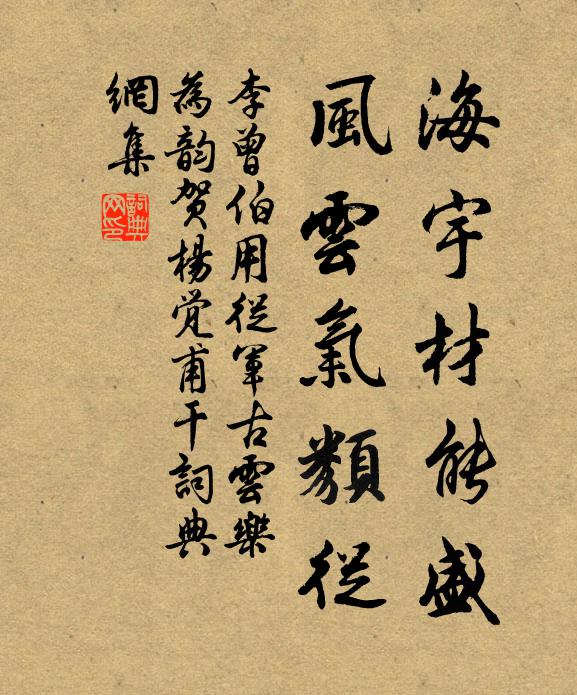 海宇材能盛
風雲氣類從
李曾伯用從軍古雲樂
為韵贺楊覚甫干詞典
網集
詞典网印